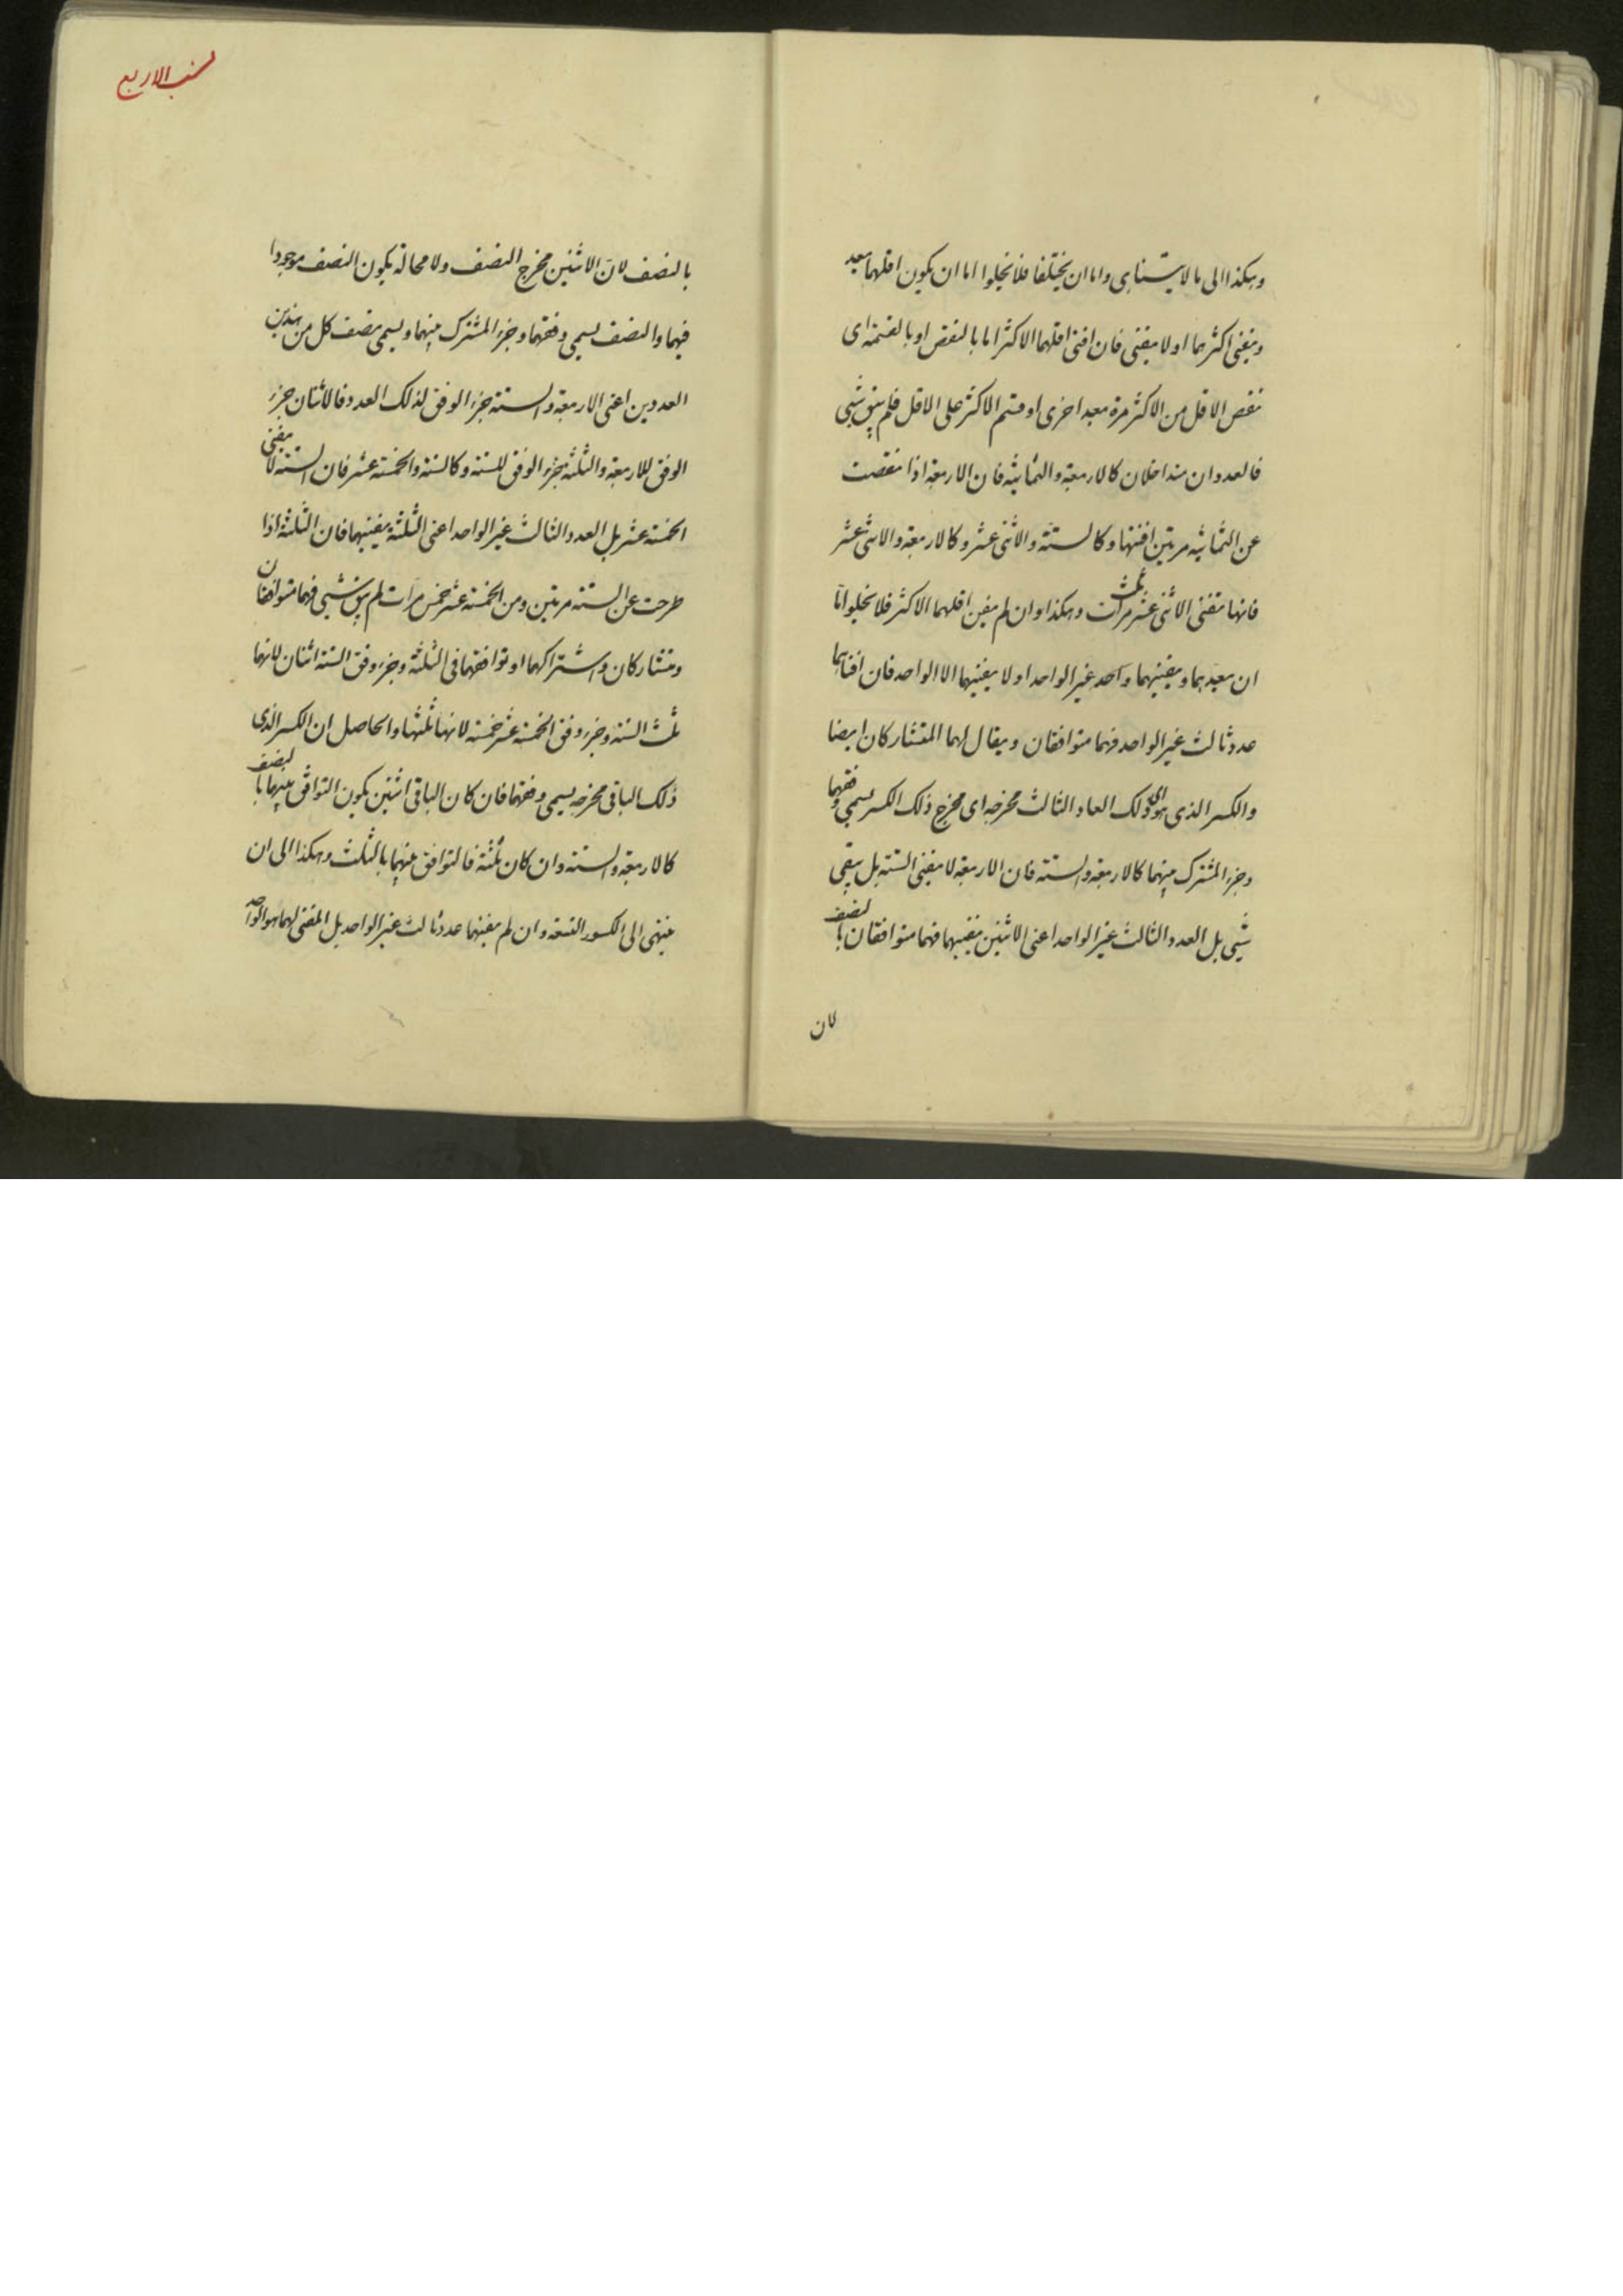 وهكذا الى ما لا يتناهى واما ان يختلفا فلا يخلوا اما ان يكون اقلهما يعد
ويفنى اكثرهما او لا يفنى فان افنى اقلهما الاكثر اما بالنقص او بالقسمة اى
نقص الاقل من الاكثر مرة بعد اخرى او قسم الاكثر على الاقل فلم يبق شيى
فالعددان متداخلان كالاربعة والثمانية فان الاربعة اذا نقصت
عن الثمانية مرتين افنتها وكالستة والاثنى عشر وكالاربعة والاثنى عشر
فانها تفنى الاثنى عشر ثلث مرات وهكذا وان لم يفن اقلهما الاكثر فلا يخلوا امّا
ان يعدهما ويفنيهما واحد غير الواحد او لا يفنيهما الا الواحد فان افناهما
عدد ثالث غير الواحد فهما متوافقان ويقال لهما المتشاركان ايضا
والكسر الذى هو اى ذلك العاد الثالث مخرجه اى مخرج ذلك الكسر يسمى وفقهما
وجزء المشترك بينهما كالاربعة والستة فان الاربعة لا يفنى الستة بل يبقى
شيى بل العدد الثالث غير الواحد اعنى الاثنين يفنيهما فهما متوافقان بالنصف
لان
نسب الاربع
بالنصف لانّ الاثنين مخرج النصف ولا محالة يكون النصف موجودا
فيهما والنصف يسمى وفقهما وجزء المشترك بينهما ويسمى نصف كل من هذين
العددين اعنى الاربعة والستة جزء الوفق لذلك العدد فالاثنان جزء
الوفق للاربعة والثلثة جزء الوفق للستة وكالستة والخمسة عشر فان الستة لا يفنى
الخمسة عشر بل العدد الثالث غير الواحد اعنى الثلثة يفنيهما فان الثلثة اذا
طرحت عن الستة مرتين ومن الخمسة عشر خمس مرات لم يبق شيى فهما متوافقان
ومتشاركان واشتراكهما او توافقهما فى الثلثة وجزء وفق الستة اثنان لانهما
ثلث الستة وجزء وفق الخمسة عشر خمسة لانها ثلثها والحاصل ان الكسر الذى
ذلك الباقى مخرجه يسمى وفقهما فان كان الباقى اثنين يكون التوافق بينهما بالنصف
كالاربعة والستة وان كان ثلثة فالتوافق بينهما بالثلث وهكذا الى ان
ينتهى الى الكسور التسعة وان لم يفنهما عدد ثالث غير الواحد بل المفنى لهما هو الواحد